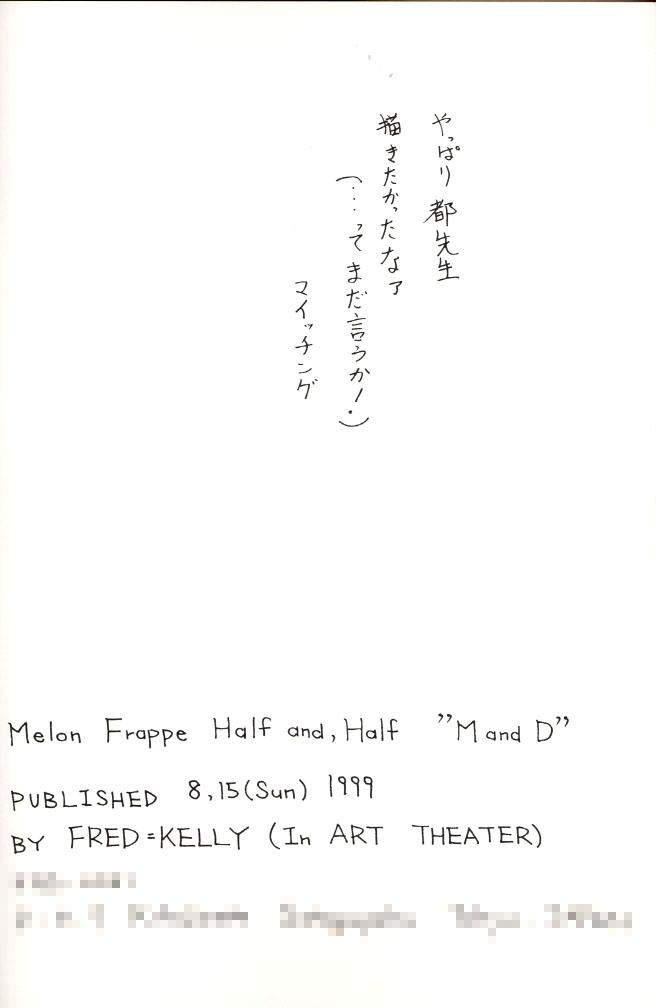 やっぱり都先生
描きたかったなァ
(…ってまだ言うか!)
マイッチング
Melon Frappe Half and, Half "M and D"
PUBLISHED 8,15(Sun) 1999
BY FRED=KELLY (In ART THEATER)